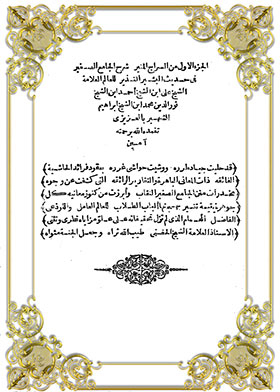 الجزء الاول من السراج المنير شرح الجامع الصغير
فى حديث البشير النذير للعالم العلامة
الشيخ على ابن الشيخ أحمد ابن الشيخ
نور الدين محمد ابن الشيخ ابراهيم
الشهير بالعزيزى
تغمده الله برحمته
آمين
(قد حليت جياد طرره ووشيت حواشى غرره بعقود فرائد الحاشية)
(الفائقه ذات المعانى الباهرة والتقارير الرائقه التى كشفت عن وجوه)
(مخدرات متن الجامع الصغير النقاب وأبرزت من كنوز معانيه كل)
(جوهرة يتيمة تسير بمحبتها الباب الطلاب للعالم العامل واللوذعى)
(الفاضل الهمام الذى لم تول تحقيقاته على علو مزاياه تطرى وتثنى)
(الاستاذ العلامة الشيخ الحفنى طيب الله ثراه وجعل الجنة مثواه)